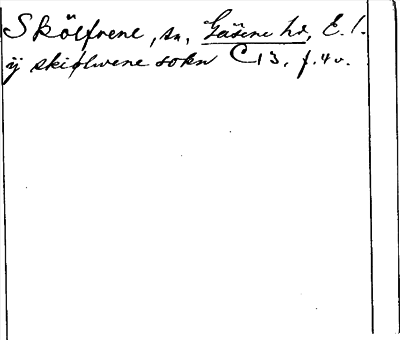 Skölfvene, sn, Gäsene hd, E. l.
ij skiølwene sokn C 13, f. 4 v.